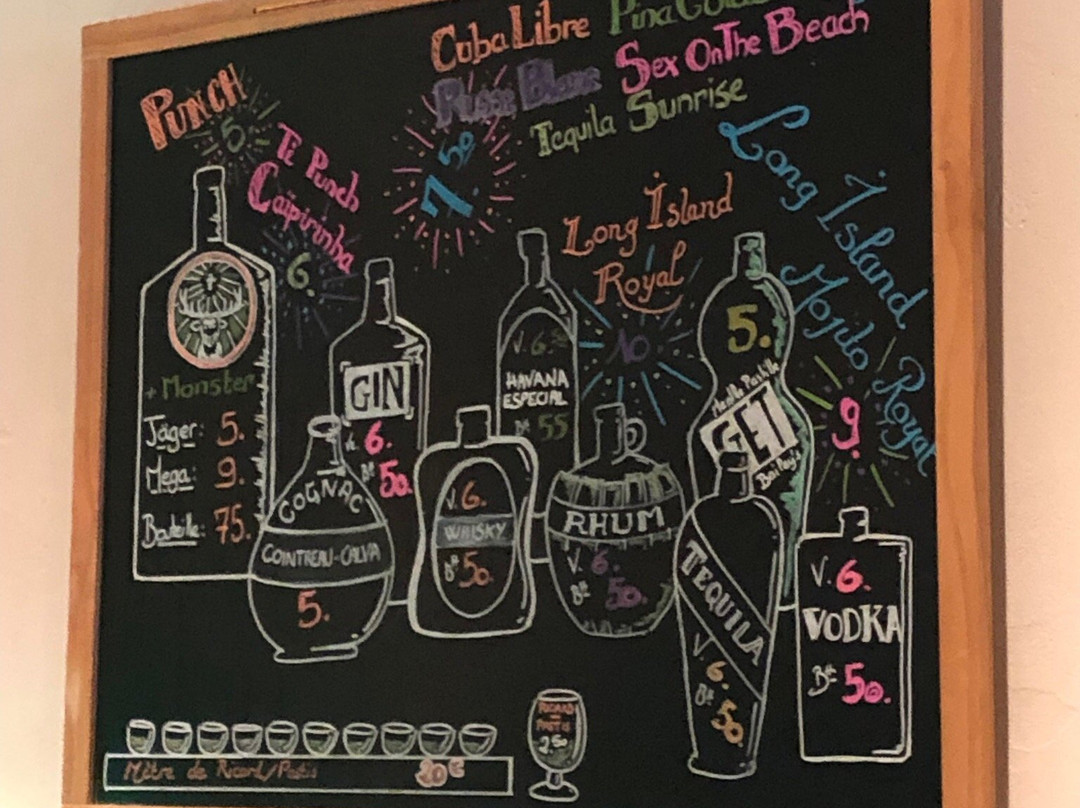 Cuba Libre Pina Colada
Russe Blanc Sex On The Beach
Tequila Sunrise
7.50
PUNCH
5
Ti Punch
Caïpirinha
6.
Long Island
Royal
10
Long Island
Mojito Royal
9.
+ Monster
Jäger: 5.
Mega: 9.
Bouteille: 75.
GIN
V. 6.
Blle 50.
V. 6.50
HAVANA
ESPECIAL
Blle 55
5.
Menthe Pastille
GET
COGNAC
COINTREAU-CALVA
5.
V. 6.
WHISKY
Blle 50.
RHUM
V. 6.
Blle 50.
TEQUILA
V. 6.
Blle 50.
V. 6.
VODKA
Blle 50.
Mètre de Ricard/Pastis 20€
RICARD
PASTIS
2.50